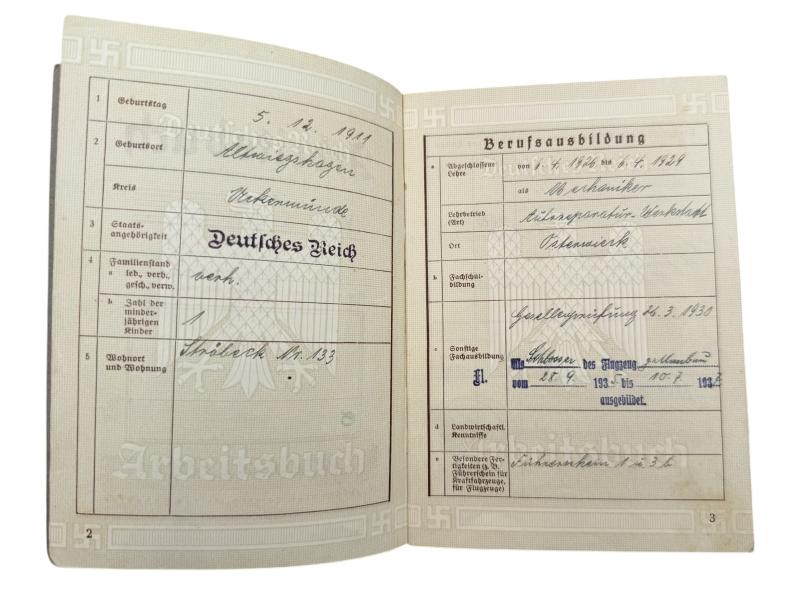 1 Geburtstag 5. 12. 1911
2 Geburtsort Altwigshagen
Kreis Ueckermünde
3 Staats-
angehörigkeit Deutsches Reich
4 Familienstand
a led., verh.,
gesch., verw. verh.
b Zahl der
minder-
jährigen
Kinder 1
5 Wohnort
und Wohnung Ströbeck Nr. 133
Arbeitsbuch
2
Berufsausbildung
a Abgeschlossene
Lehre von 1. 4. 1926 bis 6. 4. 1929
als Mechaniker
Lehrbetrieb
(Art) Autoreparatur-Werkstatt
Ort Osterwieck
b Fachschul-
bildung
Gesellenprüfung 26. 3. 1930
c Sonstige
Fachausbildung
Als Schlosser des Flugzeug zellenbau
vom 28. 9. 1935 bis 10. 7. 1937
ausgebildet.
d Landwirtschaftl.
Kenntnisse
e Besondere Fer-
tigkeiten (z. B.
Führerschein für
Kraftfahrzeuge,
für Flugzeuge) Führerschein 1 u. 3 b
3